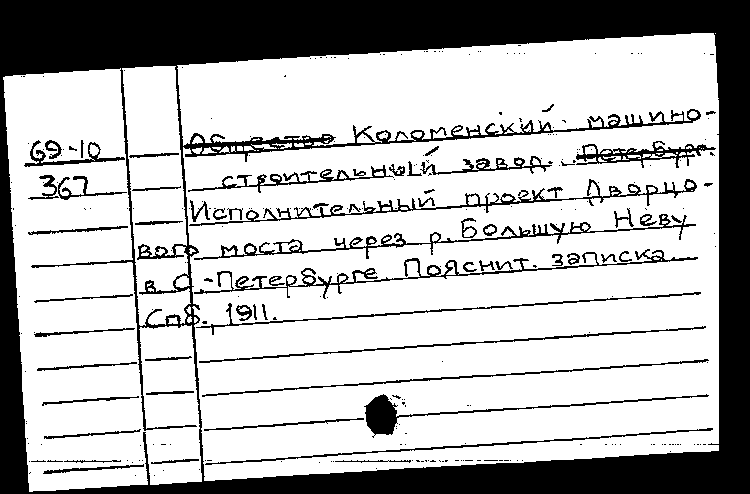 69-10 Общество Коломенский машино-
367 строительный завод. Петербург.
Исполнительный проект Дворцо-
вого моста через р. Большую Неву
в С.-Петербурге. Пояснит. записка.
Спб., 1911.